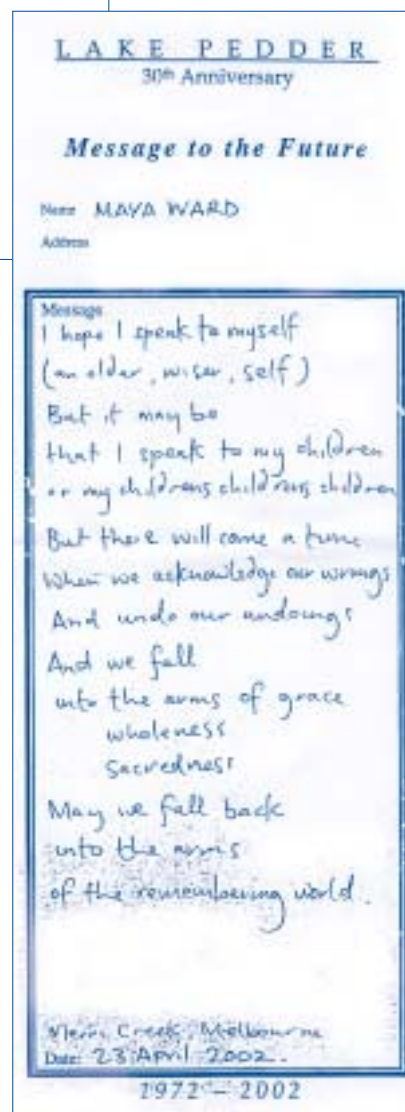 LAKE PEDDER
30th Anniversary
Message to the Future
Name MAYA WARD
Address
Message
I hope I speak to myself
(an older, wiser, self)
But it may be
that I speak to my children
or my childrens childrens children
But there will come a time
When we acknowledge our wrongs
And undo our undoings
And we fall
into the arms of grace
wholeness
sacredness
May we fall back
into the arms
of the remembering world.
Merri Creek, Melbourne
Date: 23 April 2002.
1972 – 2002